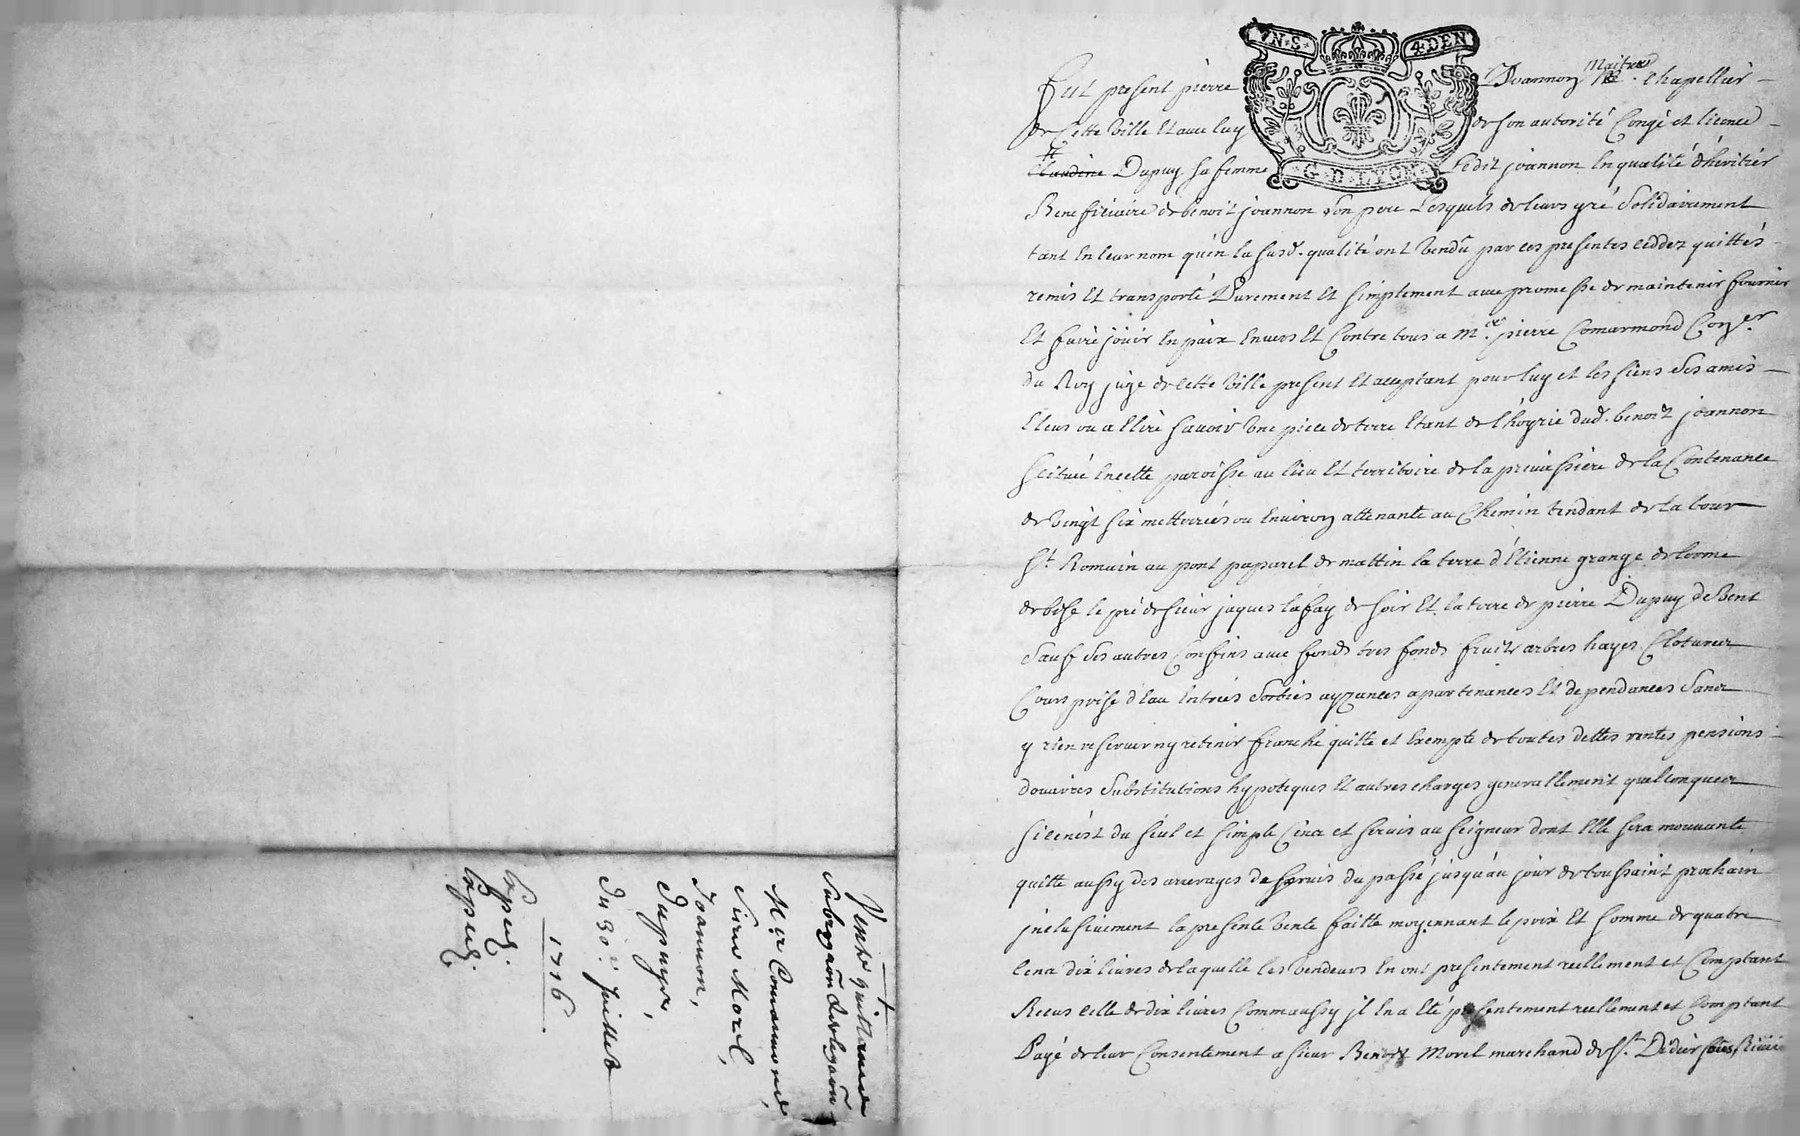 VN·S· 4·DEN
·G·D·LYON·
Fut present pierre Joannon Maitre chapellier
de Cette Ville Et avec luy de son autorité Congé et licence
Claudine Dupuy sa femme Ledit joannon En qualité dhéritiér
Beneficiaire de benoit joannon son pere Lesquels de leurs gré Solidairement
tant En leur nom qu'en la susd. qualité ont Vendu par ces presentes ceddez quittés
remis Et transporté Purement Et simplement avec promesse de maintenir fournir
Et faire joüir En paix Envers Et Contre tous a Mre. pierre Comarmond Coner.
du Roy juge de Cette Ville present Et acceptant pour luy et les siens Ses amis
Eleus ou a Elire savoir Une piece de terre Etant de l'hoyrie dud. benoit joannon
scituée En cette paroisse au lieu Et territoire de la de la Contenance
de Vingt six metterées ou Environ attenante au Chemin tendant de la tour
St. Romain au pont paparel de mattin la terre d'Etienne grange de
de bise le pré de sieur jaques lafay de soir Et la terre de pierre Dupuy de Vent
Sauf Ses autres Confins avec fonds tres fonds fruits arbres hayes Clotures
Cours prise d'Eau Entrées Sorties ayzances apartenances Et dependances Sans
y rien reserver ny retenir franche quitte et Exempte de toutes dettes rentes pensions
douaires Substitutions hypoteques Et autres charges generallement quelconques
si ce n'est du seul et simple Cens et servis au seigneur dont Elle sera mouvante
quitte aussy des arrerages de servis du passé jusqu'au jour de toussaint prochain
inclusivement la presente Vente faitte moyennant le prix Et somme de quatre
Cens dix livres de laquelle les Vendeurs En ont presentement reellement et Comptant
Receus celle de dix livres Comm'aussy il En a Eté presentement reellement et Comptant
Payé de leur Consentement a sieur Benoit Morel marchand de St. Didier sous Riviri
Vente quittance
Subrogaon & obligaon
Mre Comarmond,
Sieur Morel,
Joannon,
Dupuy,
Du 30e. Juillet
1716
Exped.
Exped.